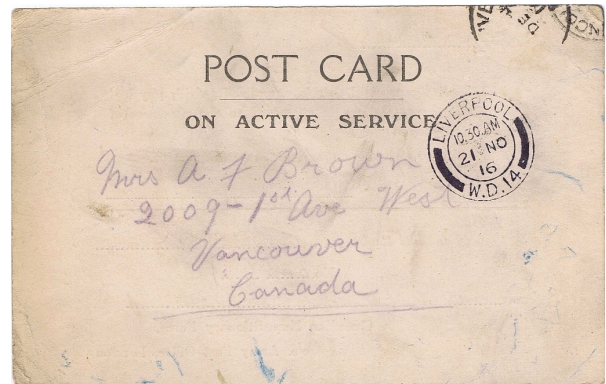 POST CARD
ON ACTIVE SERVICE
LIVERPOOL
10.30 AM
21 NO
16
W.D.14
Mrs A F Brown
2009 - 1st Ave West
Vancouver
Canada
DE